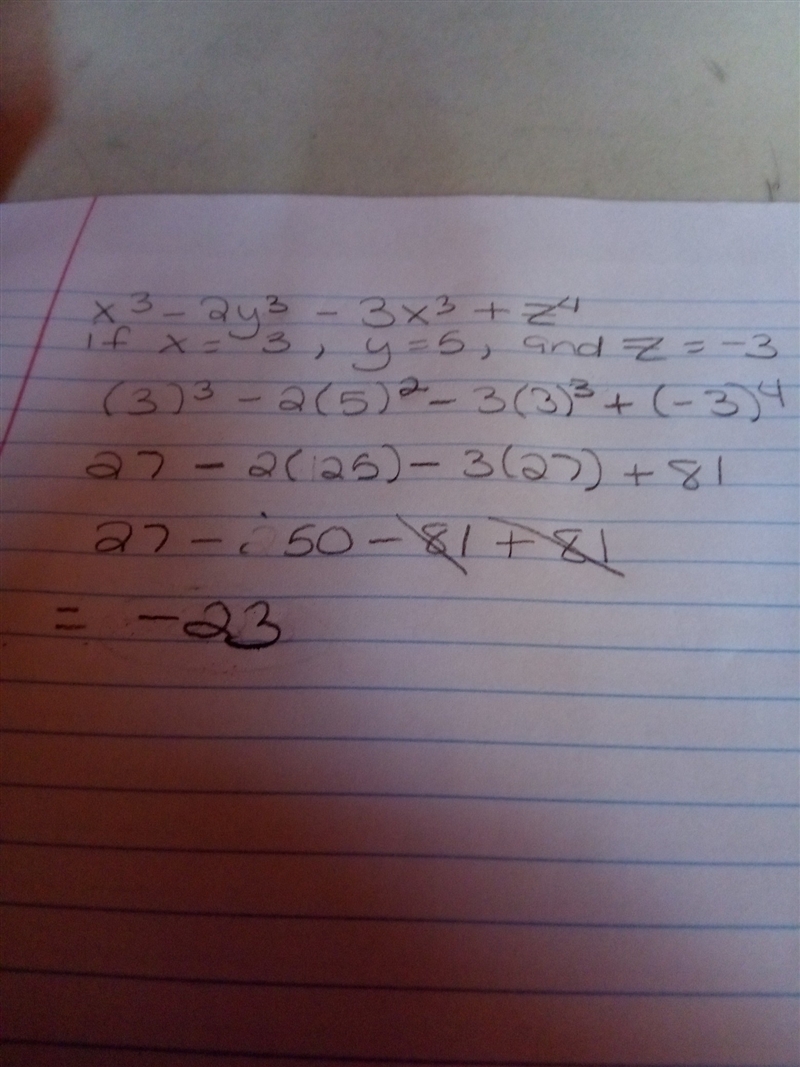 x³ - 2y³ - 3x³ + z⁴
if x = 3, y = 5, and z = -3
(3)³ - 2(5)² - 3(3)³ + (-3)⁴
27 - 2(25) - 3(27) + 81
27 - 50 - 81 + 81
= -23